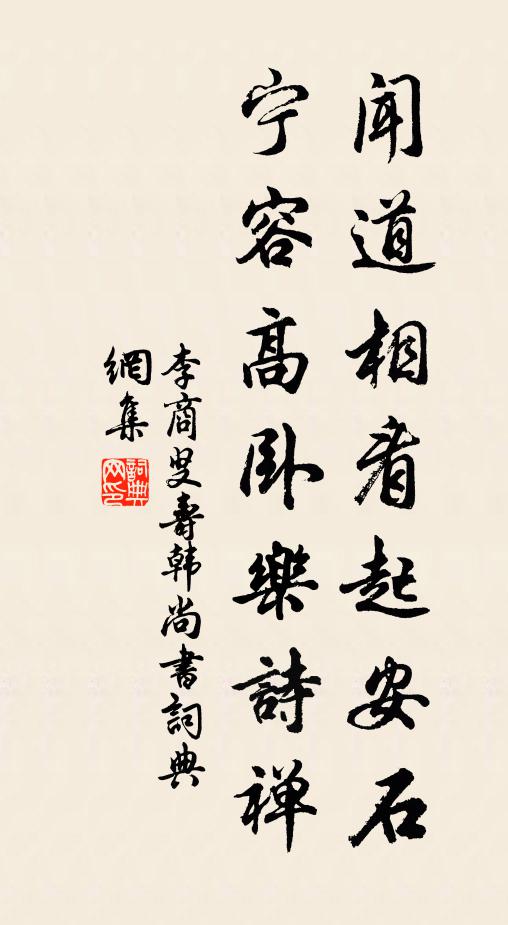 闻道相看起安石
宁容高卧樂詩禅
李商叟壽韩尚書詞典
網集
詞典网印